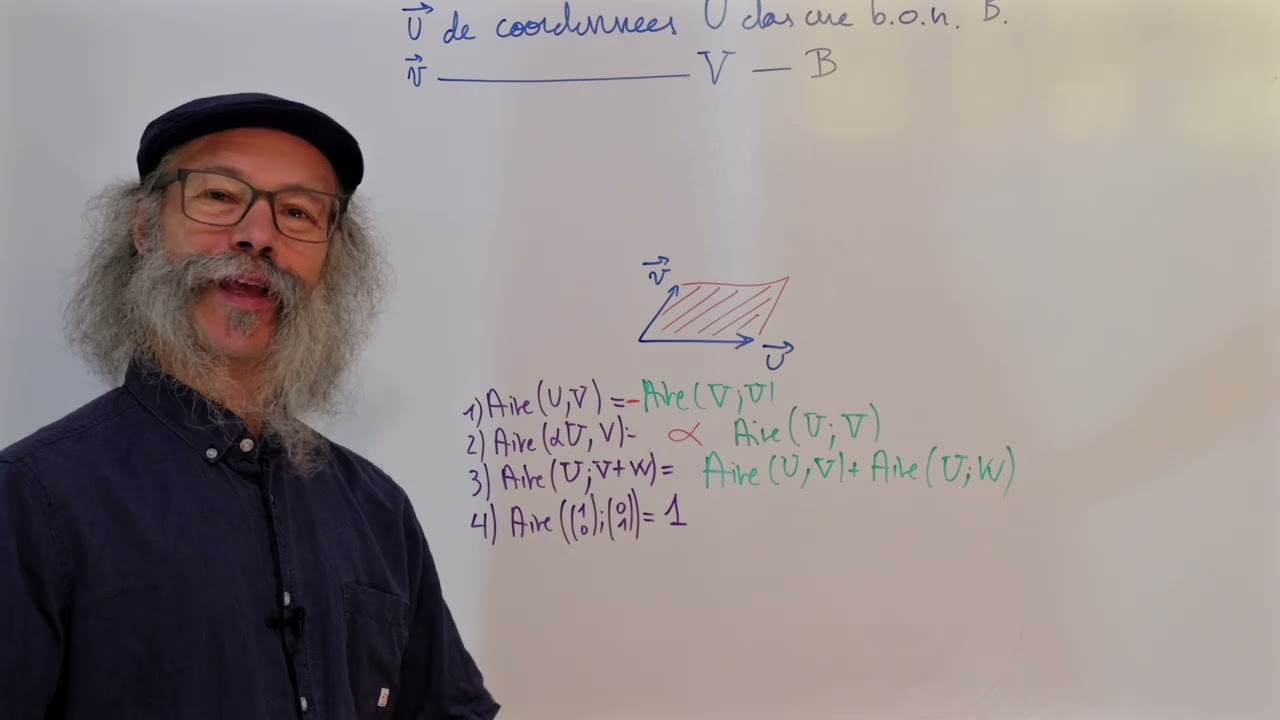 U⃗ de coordonnees U dans une b.o.n. B.
v⃗ ——— V — B
v⃗
U⃗
1) Aire (U,V) = - Aire (V;U)
2) Aire (αU, V) = α Aire (U; V)
3) Aire (U; V+W) = Aire (U,V) + Aire (U; W)
4) Aire ((1 0);(0 1)) = 1